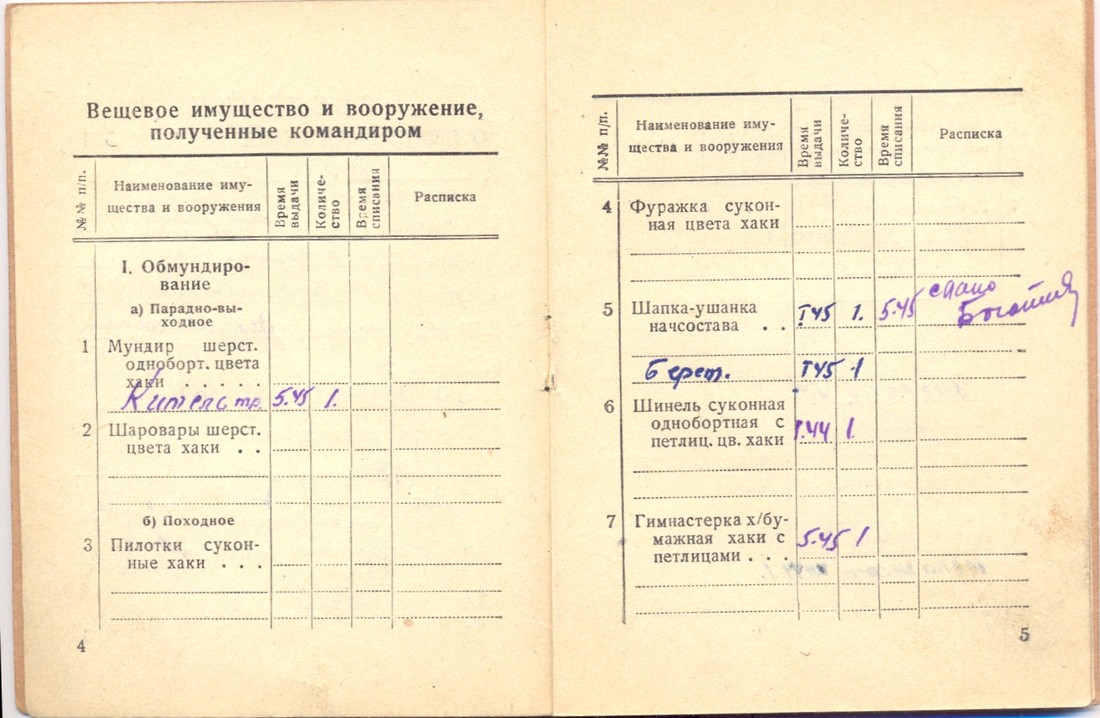 Вещевое имущество и вооружение,
полученные командиром
№№ п/п.
Наименование иму-
щества и вооружения
Время
выдачи
Количе-
ство
Время
списания
Расписка
I. Обмундиро-
вание
а) Парадно-вы-
ходное
1 Мундир шерст.
одноборт. цвета
хаки . . . . .
Китель 5.45 1.
2 Шаровары шерст.
цвета хаки . .
б) Походное
3 Пилотки сукон-
ные хаки . . .
4
№№ п/п.
Наименование иму-
щества и вооружения
Время
выдачи
Количе-
ство
Время
списания
Расписка
4 Фуражка сукон-
ная цвета хаки
5 Шапка-ушанка
начсостава . . 45 1. 5.45 сдано
Берет. 45 1
6 Шинель суконная
однобортная с
петлиц. цв. хаки 44 1.
7 Гимнастерка х/бу-
мажная хаки с
петлицами . . . 5.45 1
5